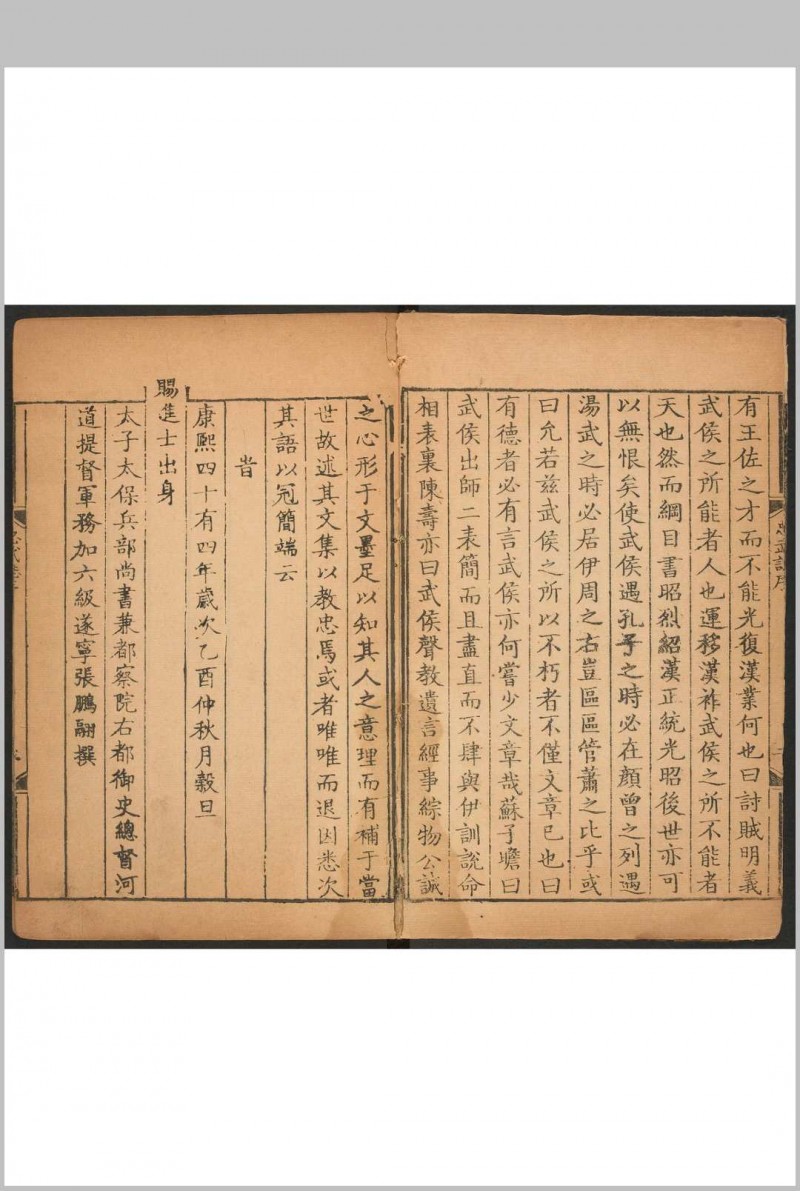 有王佐之才而不能光復漢業何也曰討賊明義
武侯之所能者人也運移漢祚武侯之所不能者
天也然而綱目書昭烈紹漢正統光昭後世亦可
以無恨矣使武侯遇孔子之時必在顏曾之列遇
湯武之時必居伊周之右豈區區管蕭之比乎或
曰允若兹武侯之所以不朽者不僅文章已也曰
有德者必有言武侯亦何嘗少文章哉蘇子瞻曰
武侯出師二表簡而且盡直而不肆與伊訓說命
相表裏陳壽亦曰武侯聲教遺言經事綜物公誠
之心形于文墨足以知其人之意理而有補于當
世故述其文集以教忠焉或者唯唯而退因悉次
其語以冠簡端云
旹
康熙四十有四年歲次乙酉仲秋月穀旦
賜進士出身
太子太保兵部尚書兼都察院右都御史總督河
道提督軍務加六級遂寧張鵬翮撰